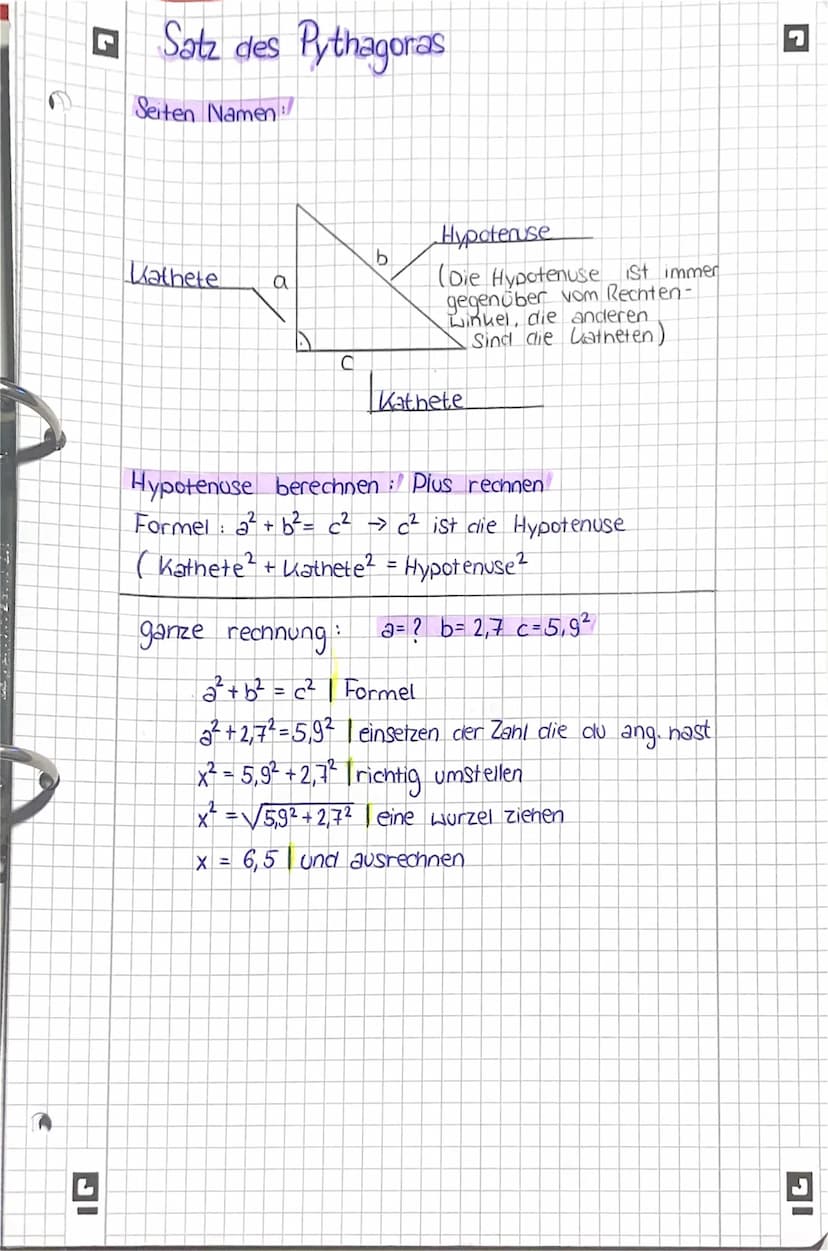 Satz des Pythagoras
Seiten Namen:
Hypotenuse
b
Kathete
a
(Die Hypotenuse ist immer
gegenüber vom Rechten-
winkel, die anderen
sind die Katheten)
c
Kathete
Hypotenuse berechnen: Plus rechnen
Formel: a² + b² = c² → c² ist die Hypotenuse
(Kathete² + Kathete² = Hypotenuse²
ganze rechnung: a=? b=2,7 c=5,9²
a² + b² = c² | Formel
a² + 2,7² = 5,9² | einsetzen der Zahl die du ang. hast
x² = 5,9² + 2,7² | richtig umstellen
x² = √5,9² + 2,7² | eine wurzel ziehen
x = 6,5 | und ausrechnen